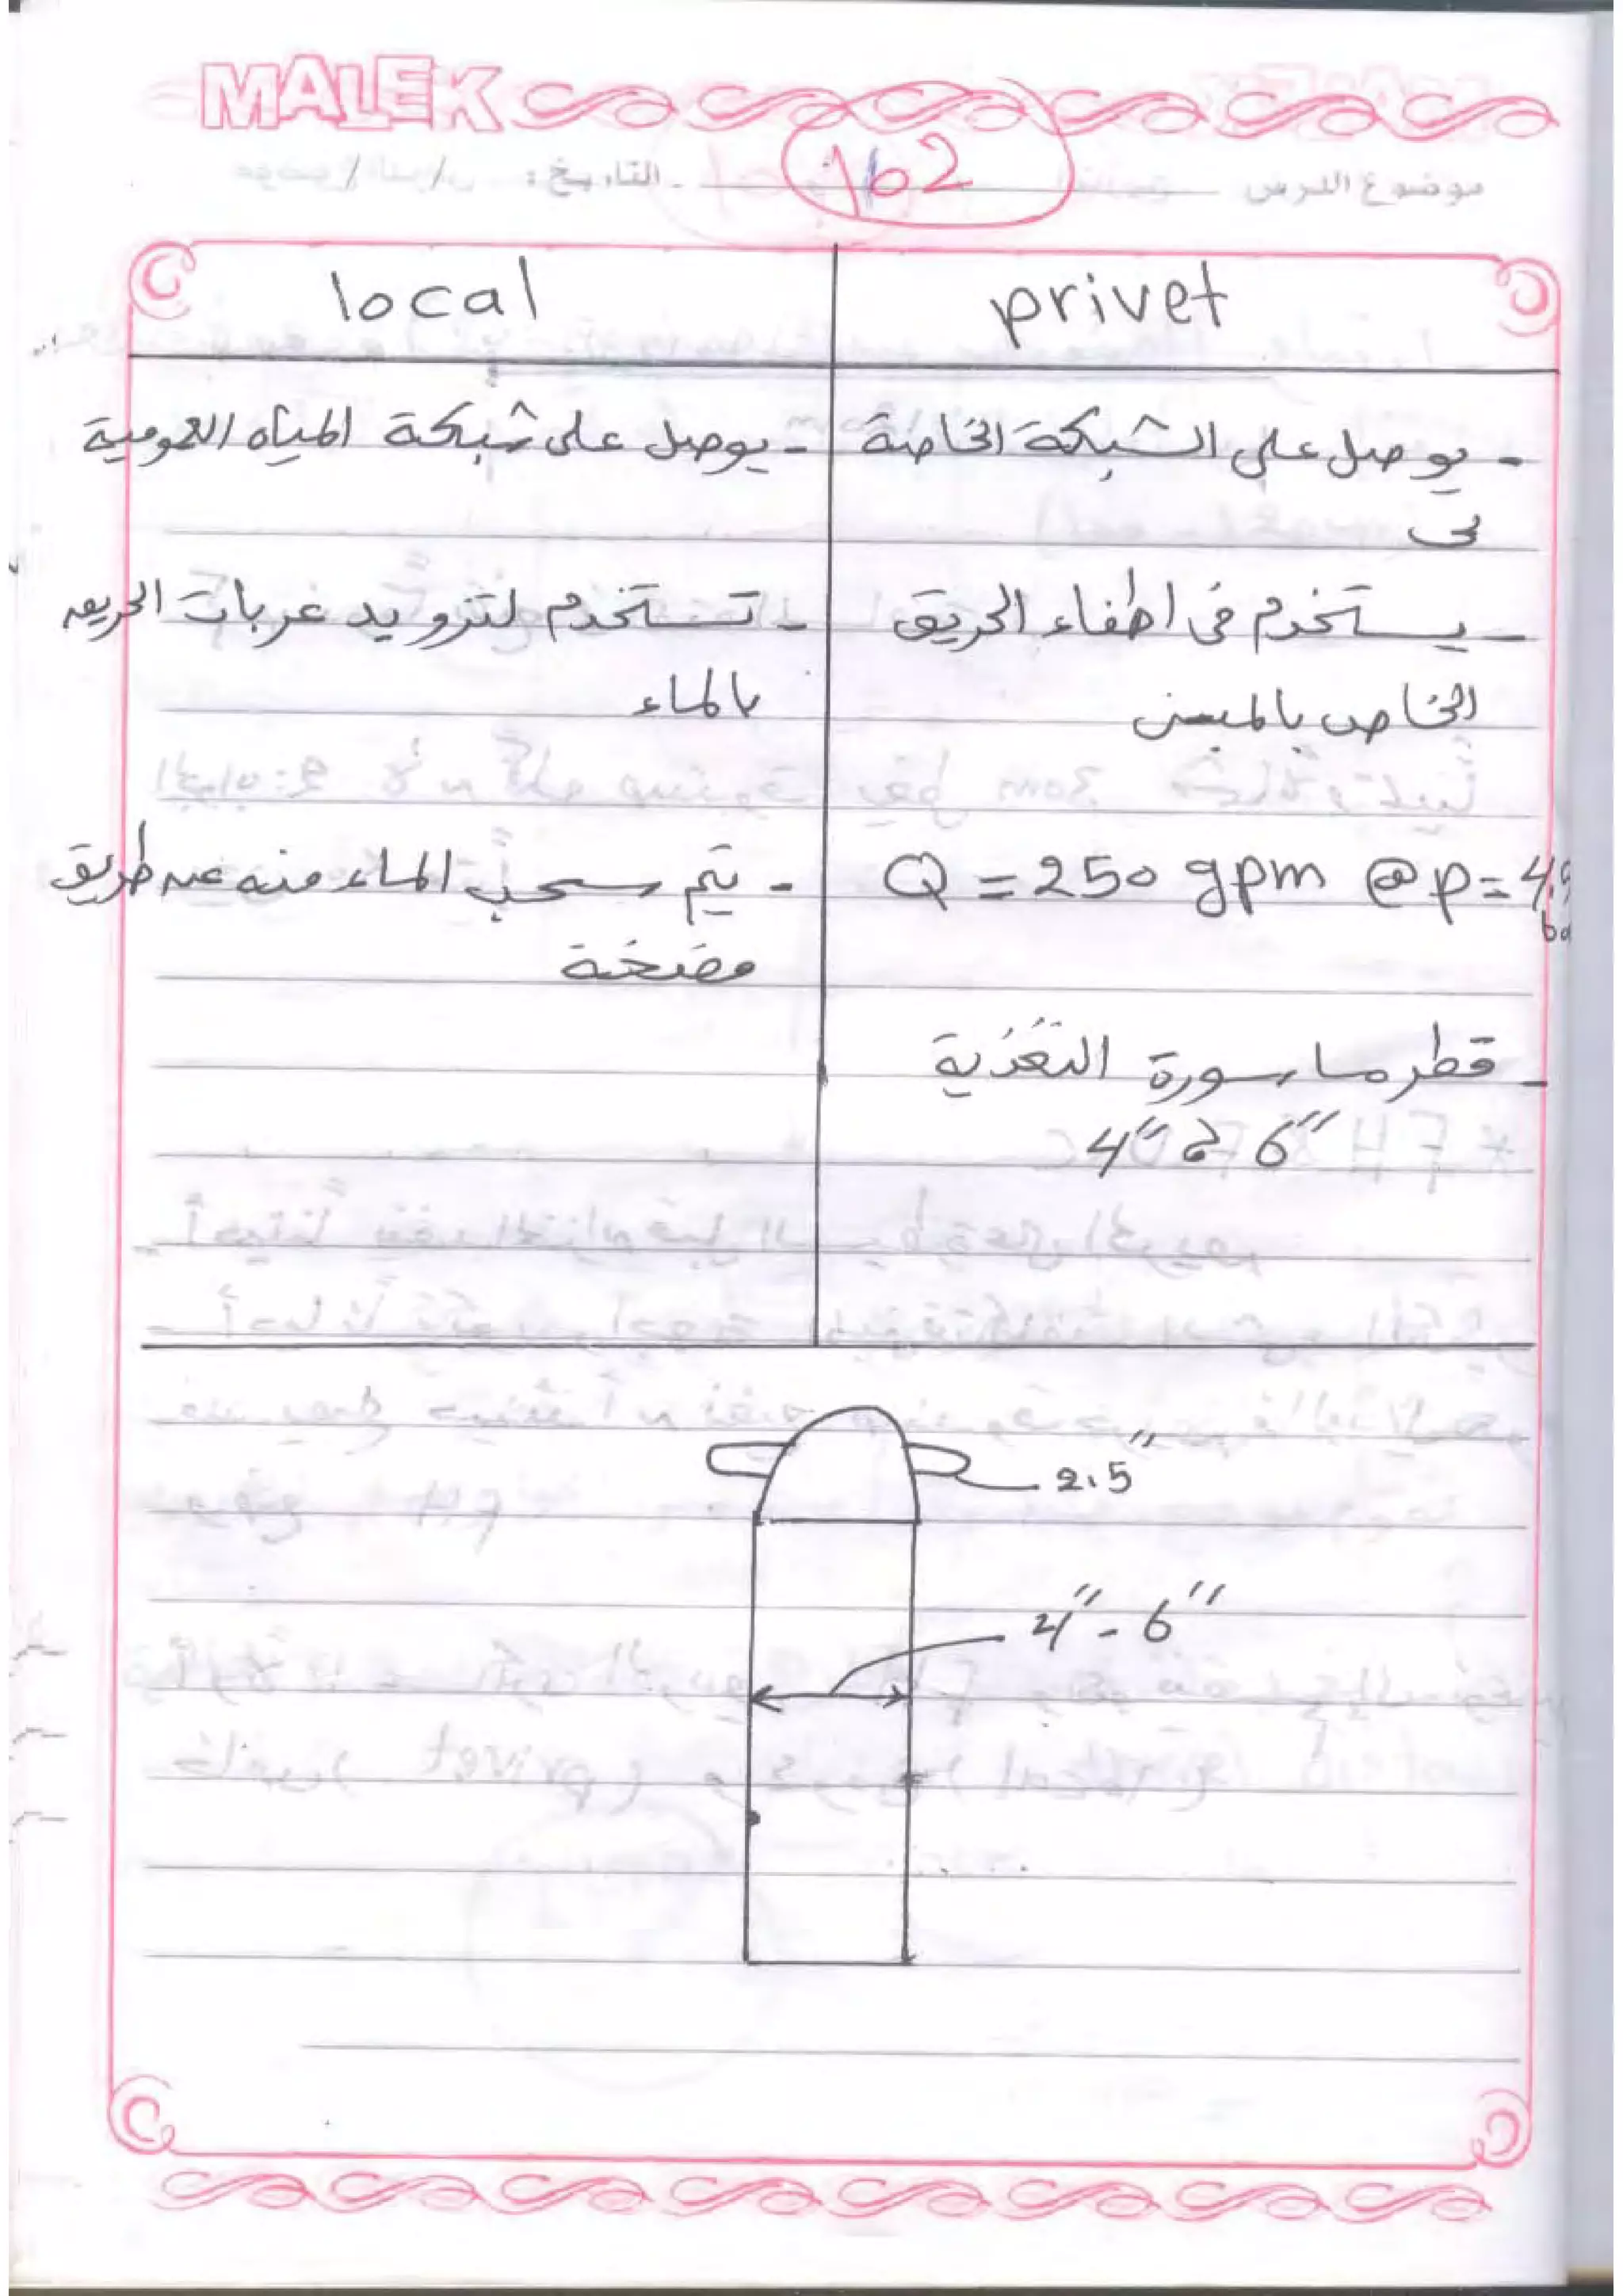 MALEK
موضوع الدرس
162
التاريخ:
privet
local
- يوصل على الشبكة الخاصة
- يوصل على شبكة المياه العمومية
- يستخدم فى اطفاء الحريق
الخاص بالمبنى
- تستخدم لتزويد عربات الحريق
بالماء
Q = 250 gpm @ p = 4.5
- يتم سحب الماء منه عن طريق
مضخة
- قطر ماسورة التغذية
2.5"
4" - 6"